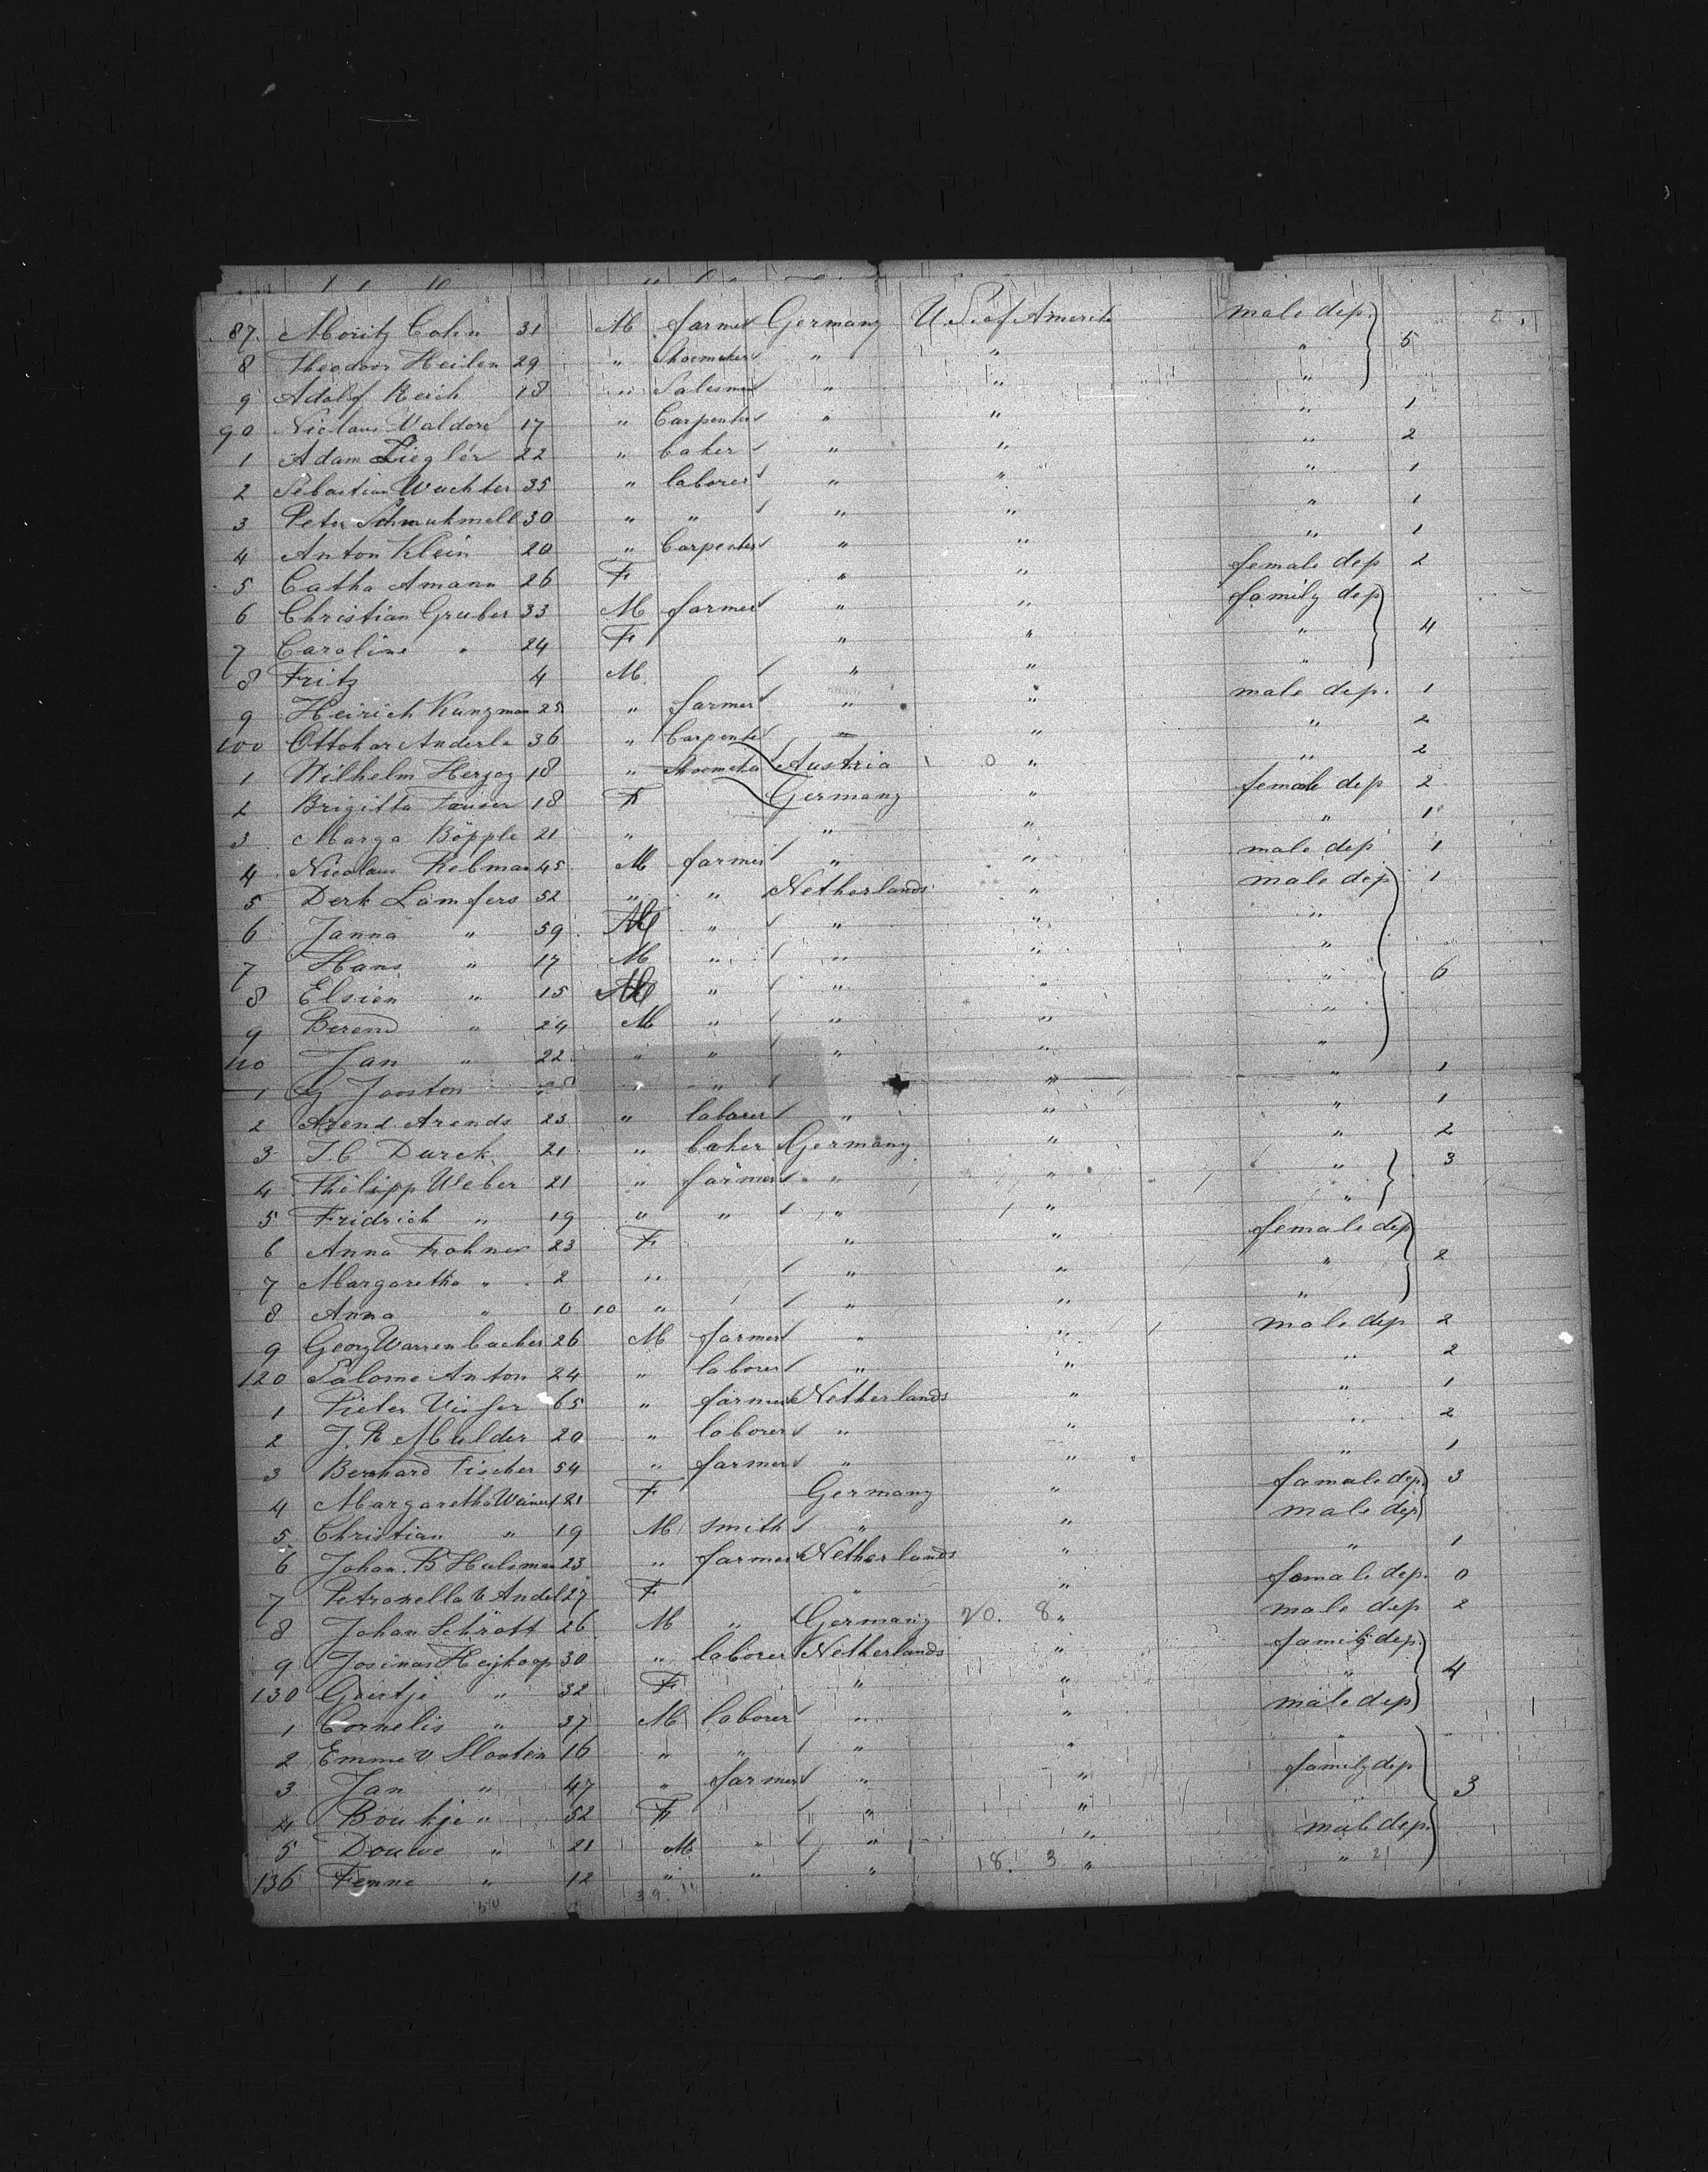 87. Moritz Cohn 31 M farmer Germany U.S. of America male dep.
8 Theodoor Heilen 29 " Shoemaker " " " 5
9 Adolf Reich 18 " Salesman " " "
90 Niclaus Waldore 17 " Carpenter " " " 1
1 Adam Ziegler 22 " baker " " " 2
2 Sebastian Wachter 35 " laborer " " " 1
3 Peter 30 " " " " " 1
4 Anton Klein 20 " Carpenter " " " 1
5 Catha Amann 26 F " " female dep 2
6 Christian Gruber 33 M farmer " " family dep
7 Caroline " 24 F " " " 4
8 Fritz 4 M. " " "
9 Heirich Kunzman 25 " farmer " " male dep. 1
100 Ottokar Anderle 36 " Carpenter " " " 2
1 Wilhelm Herzog 18 " Shoemaker Austria 0 " " 2
2 Brigitta 18 F Germany " female dep 2
3 Marga Böpple 21 " " " " 1
4 Nicolaus Rebman 45 M farmer " " male dep 1
5 Derk Lamfers 52 " " Netherlands " male dep 1
6 Janna " 59 " " " "
7 Hans " 17 M " " " "
8 Elsien " 15 " " " " 6
9 Berend " 24 M " " " "
110 Jan " 22 " " " " "
1 G Joosten " " " " 1
2 Arend Arends 23 " laborer " " " 1
3 J. C Durck 21 " baker Germany " " 2
4 Philipp Weber 21 " farmer " " " 3
5 Fridrich " 19 " " " " "
6 Anna Frohner 23 F " " female dep
7 Margaretha " 2 " " " " 2
8 Anna " 0 10 " " " "
9 Georg Warrenbacher 26 M farmer " " male dep 2
120 Salome Anton 24 " laborer " " " 2
1 Pieter Visser 65 " farmer Netherlands " " 1
2 J. R Mulder 20 " laborer " " " 2
3 Bernhard Fischer 54 " farmer " " " 1
4 Margaretha 21 F Germany " famale dep. 3
5 Christian " 19 M smith " " male dep
6 Johan. B Hulsman 23 " farmer Netherlands " " 1
7 Petronella v Andel 27 F " " female dep. 0
8 Johan Schrott 26 M " Germany 20. 8 " male dep 2
9 Josinas Heijkoop 30 " laborer Netherlands " family dep.
130 Geertje " 32 F " " " 4
1 Cornelis " 37 M laborer " " male dep
2 Emme v Slooten 16 " " " " "
3 Jan " 47 " farmer " " family dep
4 Boukje " 52 F " " " 3
5 Douwe " 21 M " " " male dep.
136 Femme " 12 " " " 18. 3 " " 21
39. 11